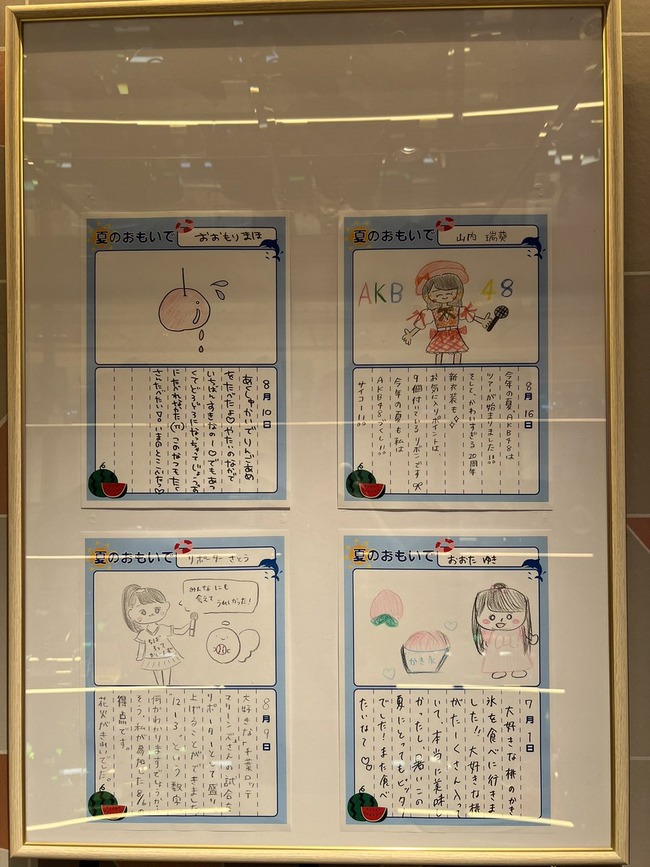 夏のおもいで
おおもりまほ
8月10日
あくしゅかいでりんごあめ
をたべたよ♡やたいのなかで
いちばんすきなの〜♡でもあつ
くてどろどろになっちゃってじょうず
にたべれなかた つぎのなつもたく
さんたべたい♡。いまのとこ
夏のおもいで
山内 瑞葵
AKB 48
8月16日
今年の夏、AKB48は
ツアーが始まりました!!
そして、かわいすぎる20周年
新衣装も
お気に入りポイントは、
9個付いているリボンです
今年の夏も私は
AKB48づくし!!
サイコー!!
夏のおもいで
リポーターさとう
みんなにも
会えて
うれしかった!
8月9日
大好きな千葉ロッテ
マリーンズさんの試合を
リポーターとして盛り
上げることができました。
"12-3"という数字
何かわかりますでしょうか?
そう、私が参加した8/9の
得点です。
花火がきれいでした。
夏のおもいで
おおた ゆき
かき氷
7月1日
大好きな桃のかき
氷を食べに行きま
した!!大好きな桃
がたくさん入って
いて、本当に美味し
かったし、暑いこの
夏にとってもピッタリ
でした!また食べ
たいな〜♡